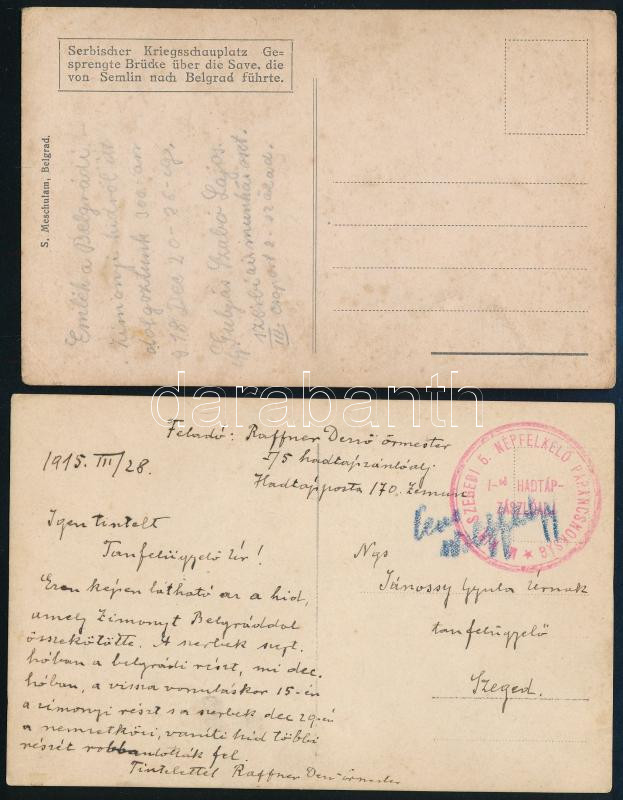 Serbischer Kriegsschauplatz Ge=
sprengte Brücke über die Save, die
von Semlin nach Belgrad führte.
S. Meschulam, Belgrad.
Emlék a Belgrádi
Zimonyi hidról itt
dolgoztunk
918 Dec 20-25-ig.
Gulyás Szabó Lajos
III. csoport 2. század.
darabanth
Feladó: Raffner Dezső őrmester
I/5 hadtápzászlóalj
Hadtápposta 170. Zemun
1915. III/28.
SZEGEDI 5. NÉPFELKELŐ PARANCSNOKSÁG
I-ső HADTÁP-
ZÁSZLÓALJ
Igen tisztelt
Tanfelügyelő Úr!
Ezen képen látható az a hid,
amely Zimonyt Belgráddal
összekötötte. A szerbek szept.
hóban a belgrádi részt, mi dec.
hóban, a vissza vonuláskor 15-én
a zimonyi részt s a szerbek dec 29-én
a nemzetközi, vasúti hid többi
részét robbantották fel.
Tisztelettel Raffner Dezső őrmester
Ngs
Jánossy Gyula Úrnak
tanfelügyelő
Szeged.